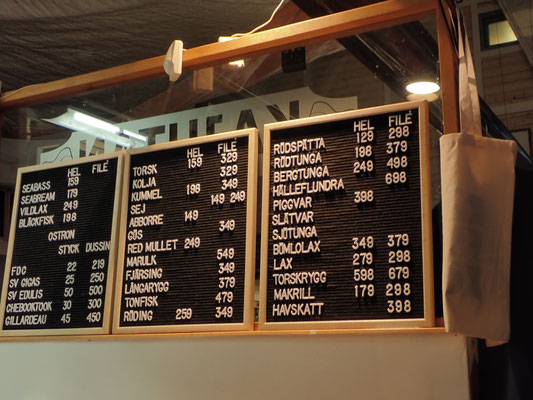 HEL FILÉ
SEABASS 159
SEABREAM 179
VILDLAX 249
BLÄCKFISK 198
OSTRON
STYCK DUSSIN
FDC 22 219
SV GIGAS 25 250
SV EDULIS 50 500
CHEBOOKTOOK 30 300
GILLARDEAU 45 450
HEL FILÉ
TORSK 159 329
KOLJA 329
KUMMEL 198 349
SEJ 149 249
ABBORRE 149
GÖS 349
RED MULLET 249
MARULK 549
FJÄRSING 349
LÅNGARYGG 379
TONFISK 479
RÖDING 259 349
HEL FILÉ
RÖDSPÄTTA 129 298
RÖDTUNGA 198 379
BERGTUNGA 249 498
HÄLLEFLUNDRA 698
PIGGVAR 398
SLÄTVAR
SJÖTUNGA
BÖMLOLAX 349 379
LAX 279 298
TORSKRYGG 598 679
MAKRILL 179 298
HAVSKATT 398